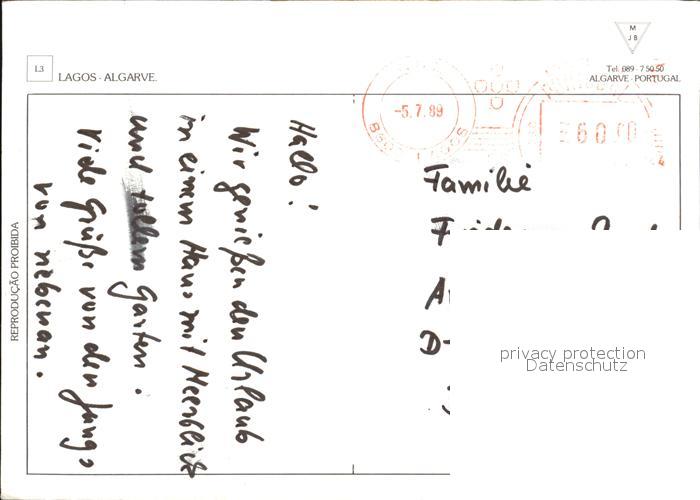 M
JB
L3
LAGOS - ALGARVE.
Tel. 089 - 7 50 50
ALGARVE - PORTUGAL
-5.7.89
60.00
REPRODUÇÃO PROIBIDA
Hallo!
Wir genießen den Urlaub
in einem Haus mit Meerblick
und tollem Garten.
Viele Grüße von den Jungs
von nebenan.
Familie
D-
privacy protection
Datenschutz